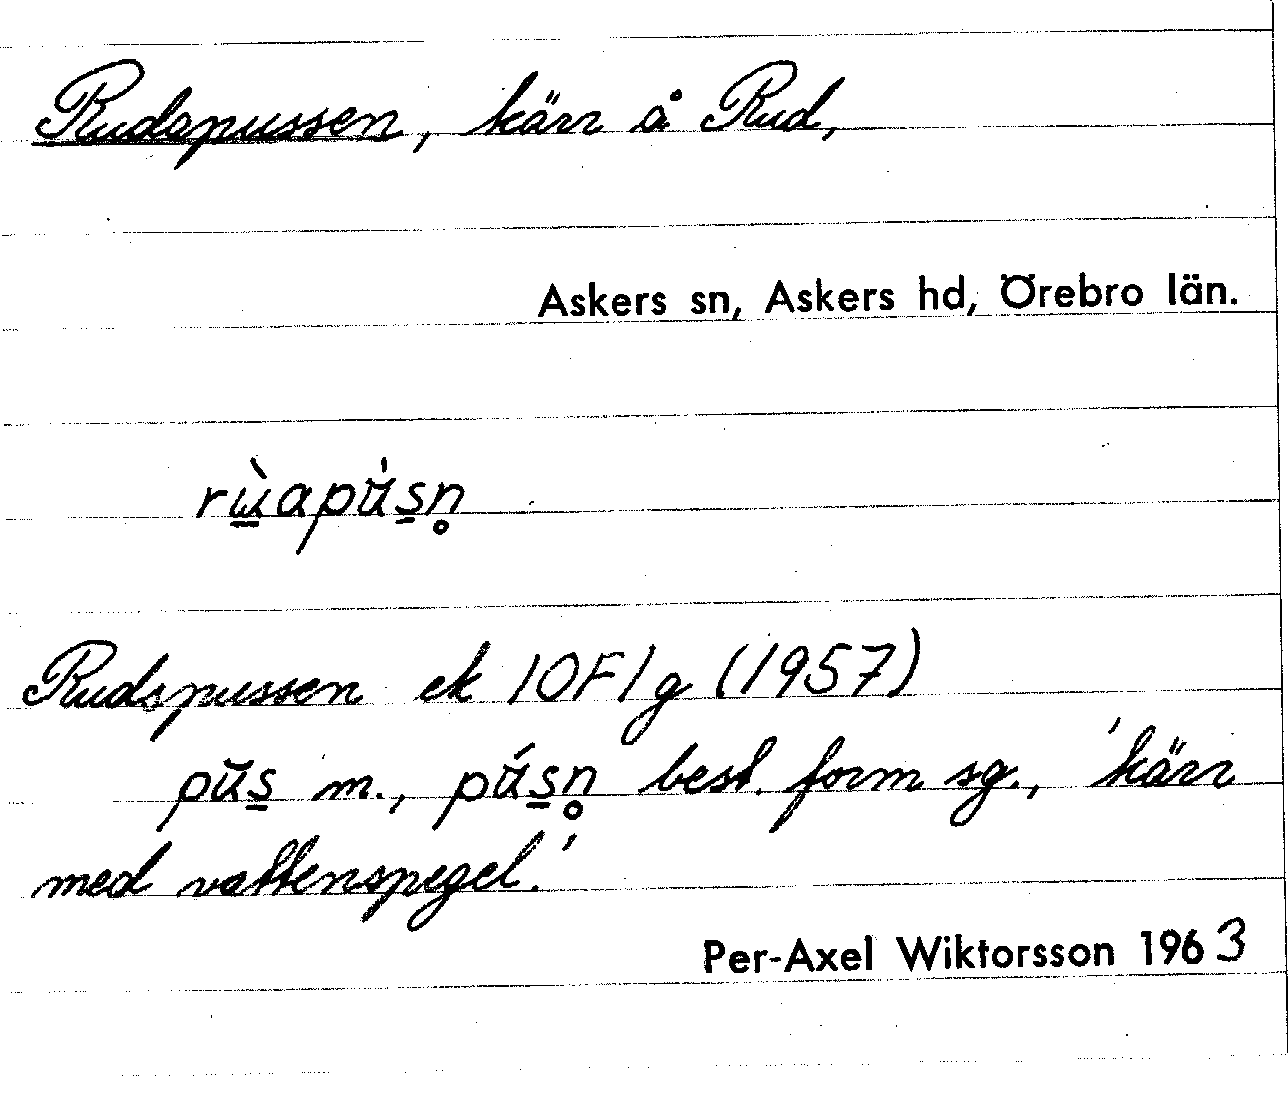 Rudspussen, kärr å Rud,
Askers sn, Askers hd, Örebro län.
rɯ̱̀apŭ́s̱n̥
Rudspussen ek 10F1g (1957)
pŭs̱ m., pŭ́s̱n̥ best. form sg., 'kärr
med vattenspegel.'
Per-Axel Wiktorsson 1963